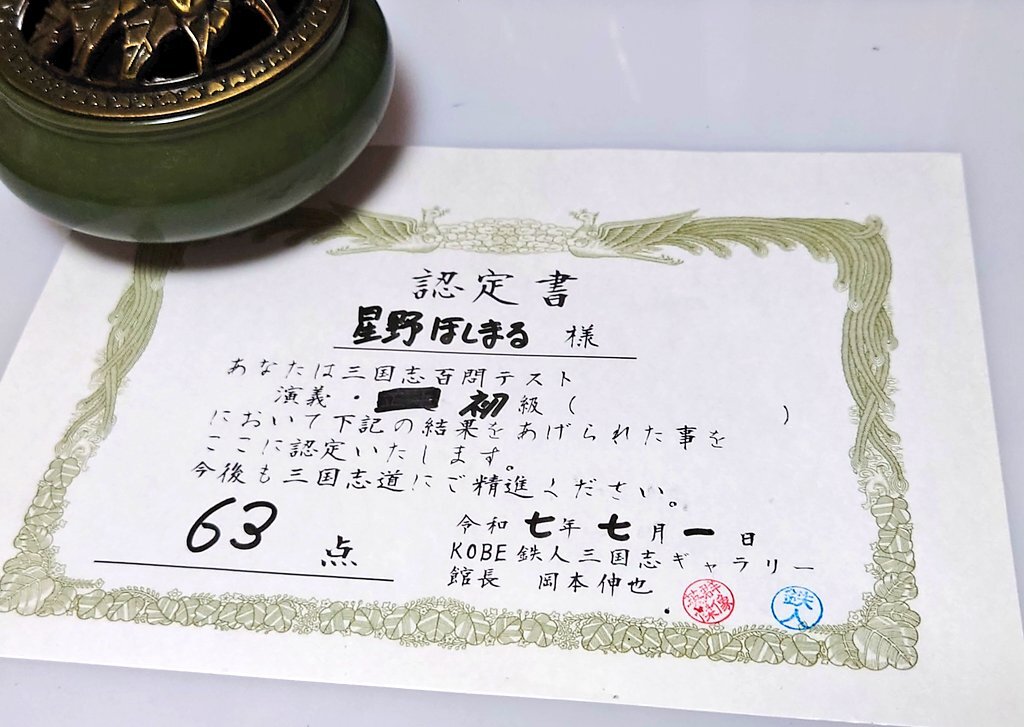 認定書
星野ほしまる 様
あなたは三国志百問テスト
演義・ 初級 ( )
において下記の結果をあげられた事を
ここに認定いたします。
今後も三国志道にご精進ください。
63 点
令和 七年 七月 一日
KOBE鉄人三国志ギャラリー
館長 岡本伸也
鉄人